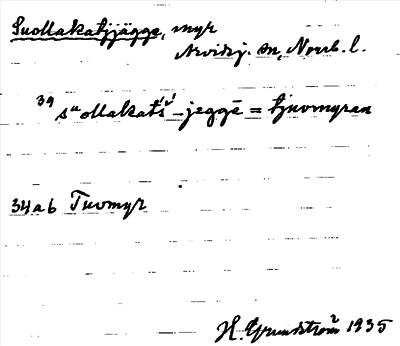 Suollakatjjägge, myr
Arvidsj. sn, Norrb. l.
39 sᵘollakat́ś-jeggē = tjuvmyren
34ab Tuvmyr
H. Grundström 1935